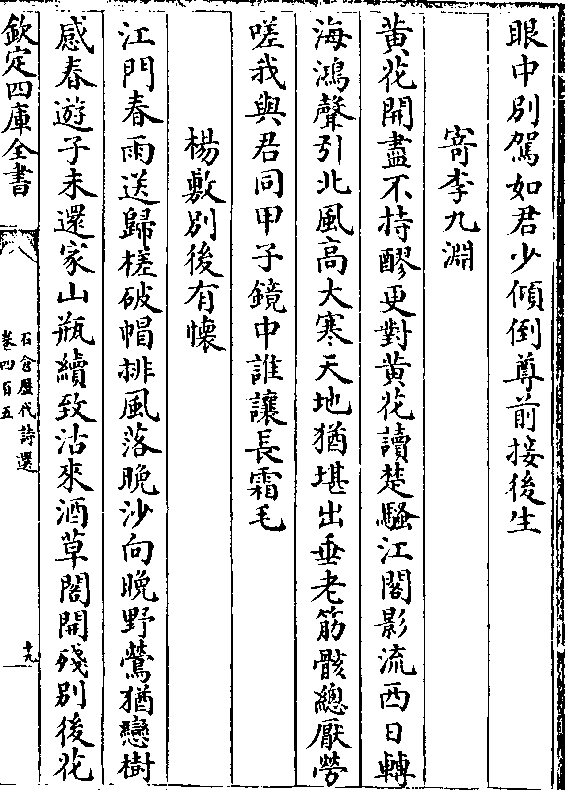 眼中別駕如君少傾倒尊前接後生
寄李九淵
黃花開盡不持醪更對黃花讀楚騷江閣影流西日轉
海鴻聲引北風高大寒天地猶堪出垂老筋骸總厭勞
嗟我與君同甲子鏡中誰讓長霜毛
楊敷別後有懷
江門春雨送歸槎破帽排風落晚沙向晚野鶯猶戀樹
感春遊子未還家山瓶續致沽來酒草閣開殘別後花
欽定四庫全書
石倉歷代詩選
卷四百五
十九